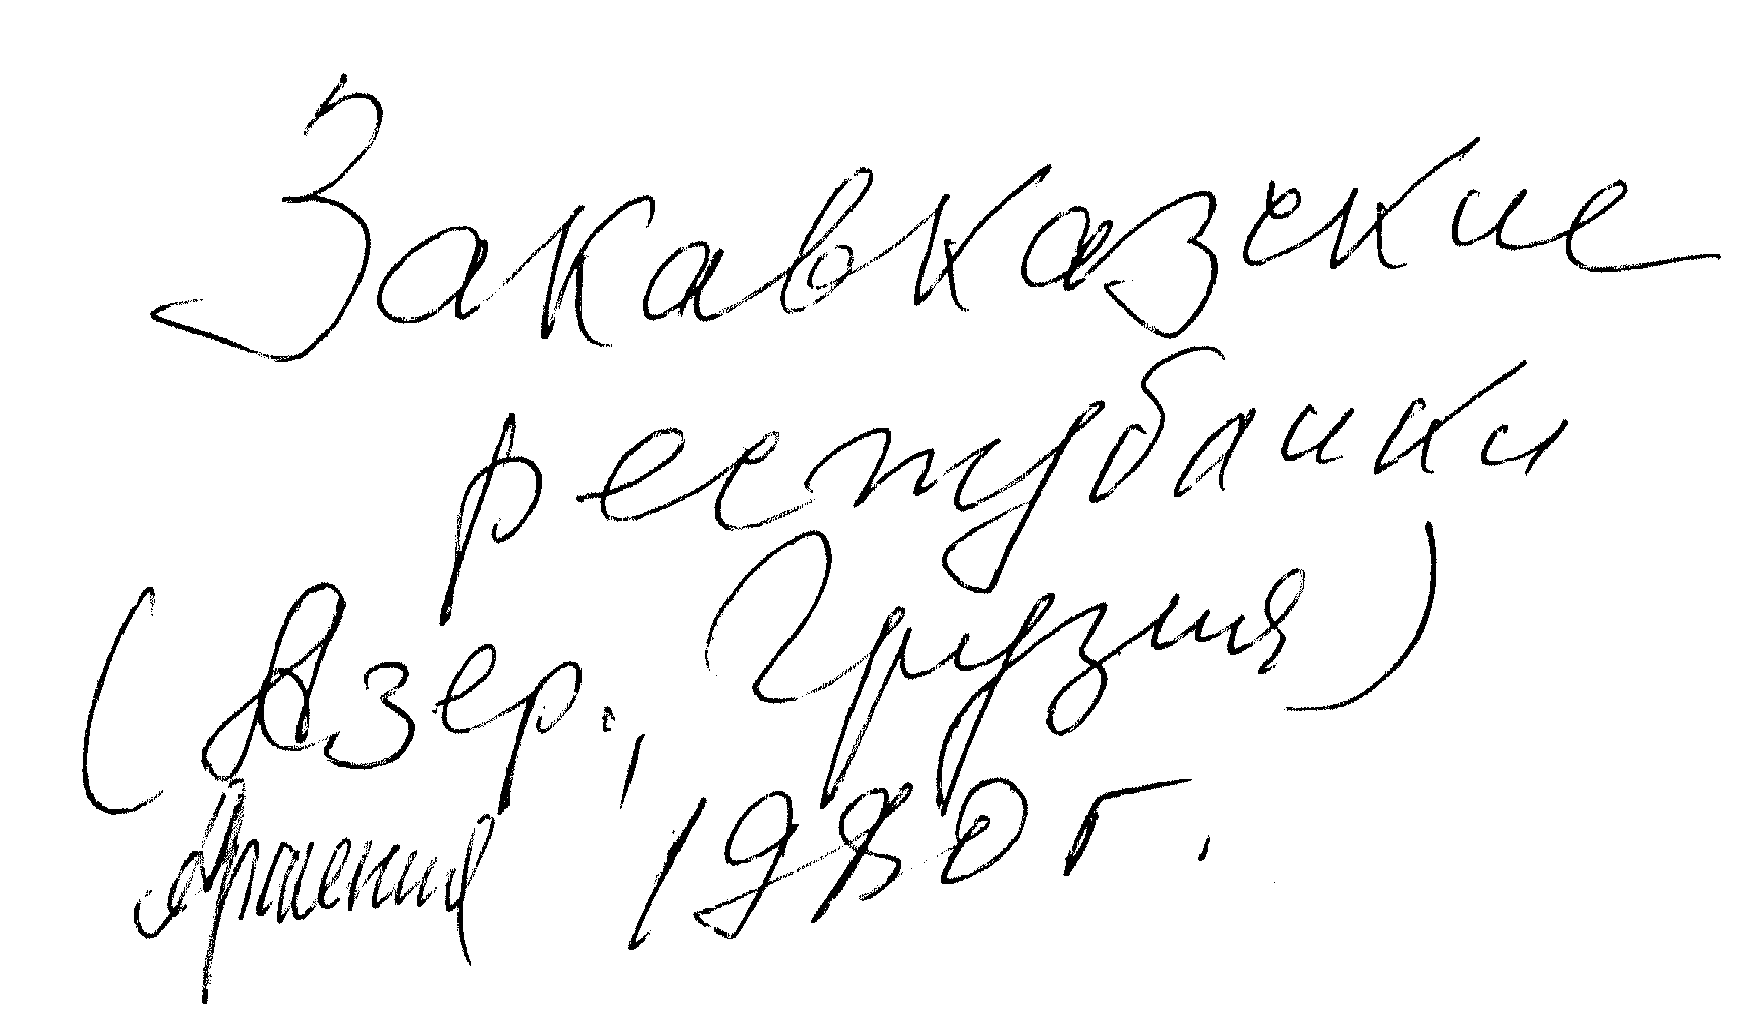 Закавказские
республики
(Азер., Грузия)
Армения 1980 г.